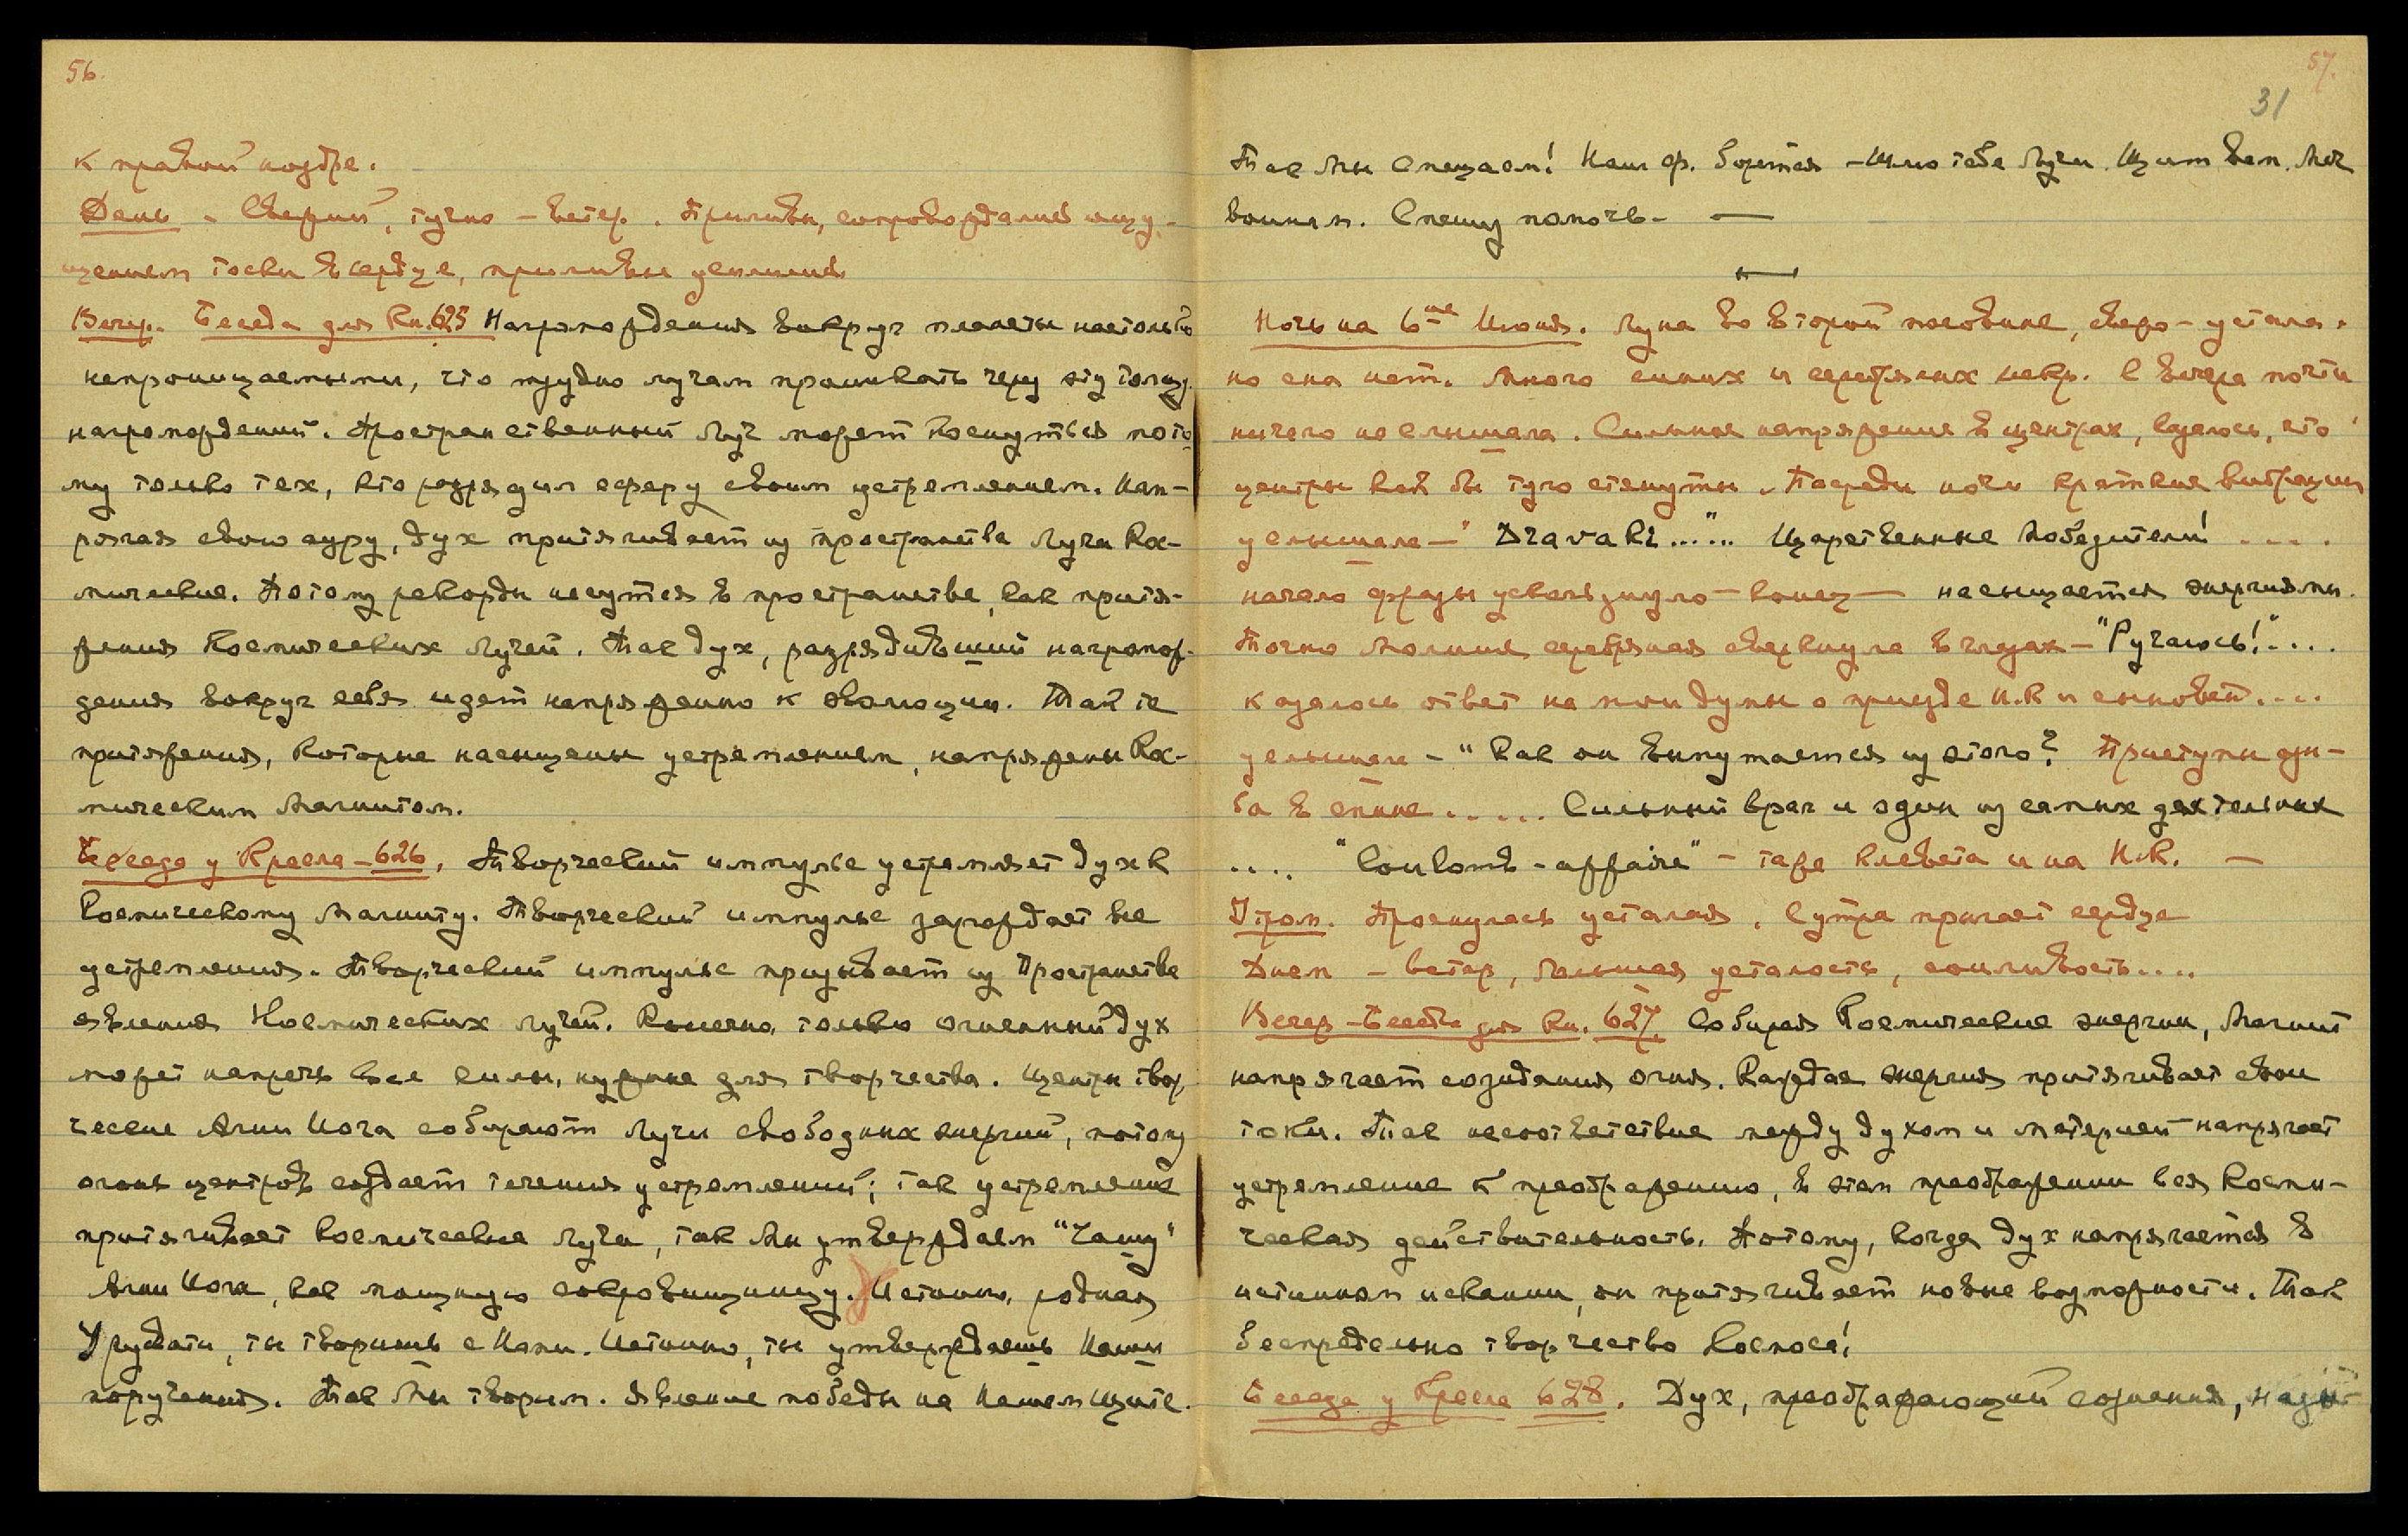 56.
к правой ноздре.
День - Свежий, тучно - ветер. Приливы, сопровождались ощу-
щением тоски в сердце, приливы усилились
Вечер. Беседа для Кн. 625 Нагромождения вокруг планеты настолько
непроницаемыми, что трудно лучам проникать через эту толщу
нагромождений. Пространственный Луч может коснуться пото-
му только тех, кто разрядил сферу своим устремлением. Нап-
рягая свою ауру, дух притягивает из пространства Лучи Кос-
мические. Потому рекорды несутся в пространстве, как притя-
жения Космических Лучей. Так дух, разрядивший нагромож-
дения вокруг себя идет напряженно к эволюции. Так те
притяжения, которые насыщены устремлением, напряжены Кос-
мическим Магнитом.
Беседа у Кресла - 626. Творческий импульс устремляет дух к
Космическому Магниту. Творческий импульс зарождает все
устремления. Творческий импульс призывает из Пространства
явления Космических Лучей. Конечно, только огненный дух
может напречь все силы, нужные для творчества. Центры твор
ческие Агни Йога собирают Лучи свободных энергий, потому
огонь центров создает течения устремлений; так устремление
притягивает Космические Лучи, так Мы утверждаем "Чашу"
Агни Йога, как мощную сокровищницу. Истинно, родная
Урусвати, ты творишь с Нами. Истинно, ты утверждаешь Наши
поручения. Так Мы творим. Явление победы на Нашем Щите.
57.
31
Так Мы Спешаем! Наш ф. борется - Шлю тебе Лучи. Щит вам. Меч
воинам. Спешу помочь. —
Ночь на 6ое Июня. Луна во второй половине, свежо - устала,
но сна нет. Много синих и серебряных искр. С вечера почти
ничего не слышала. Сильное напряжение в центрах, казалось, что
центры как бы туго стянуты. Посреди ночи краткие вибрации
услышала - "Dzavaki....." Царственные Победители! ....
начало фразы ускользнуло - конец — насыщается энергиями.
Точно молния серебряная сверкнула в глазах - "Ручаюсь!"....
казалось ответ на мои думы о приезде Н.К и сыновей....
услышала - "Как он выпутается из этого? Приступы озно-
ба в спине ..... Сильный враг и один из самых деятельных
.... "Coulomb - affaire" - та же клевета и на Н.К. —
Утром. Проснулась усталая. С утра прыгает сердце
Днем - ветер, большая усталость, сонливость....
Вечер - Беседа для Кн. 627. Собирая Космические энергии, Магнит
напрягает созидания огня. Каждая энергия притягивает свои
токи. Так несоответствие между духом и материей напрягает
устремление к преображению, в этом преображении вся Косми-
ческая действительность. Потому, когда дух напрягается в
истинном искании, он притягивает новые возможности. Так
беспредельно творчество Космоса!
Беседа у Кресла 628. Дух, преображающий сознания,